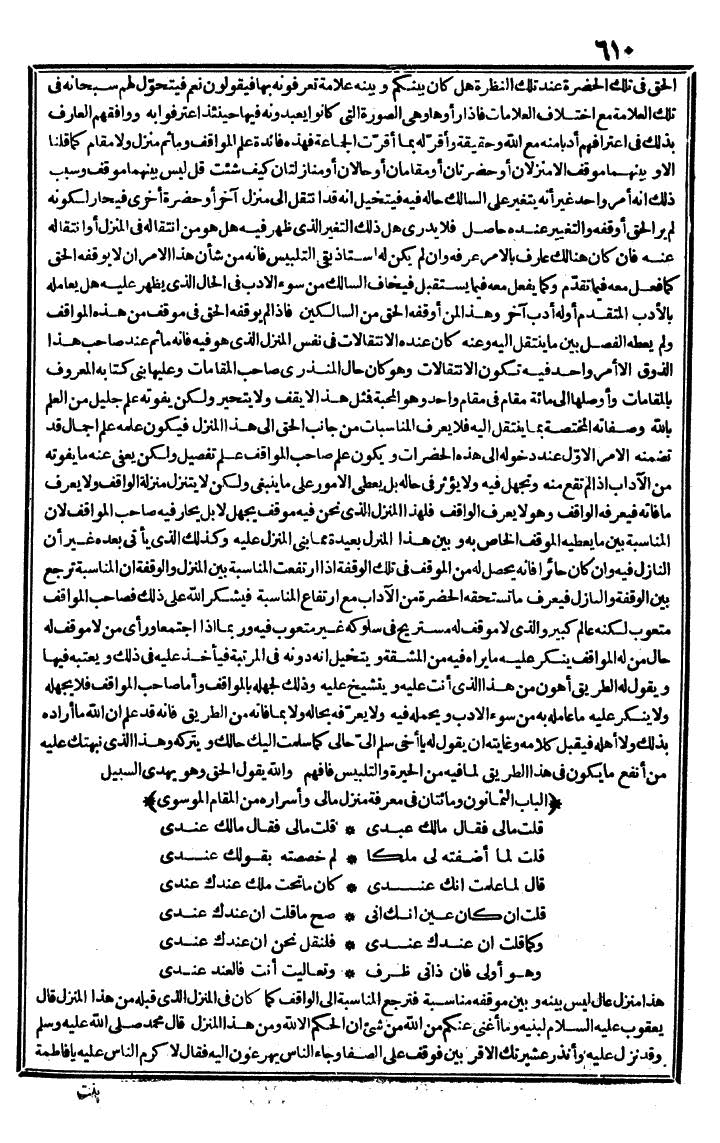 ٦١٠
الحق فى تلك الحضرة عند تلك النظرة هل كان بينكم و بينه علامة تعرفونه بها فيقولون نعم فيتحوّل لهم سبحانه فى
تلك العلامة مع اختلاف العلامات فاذا رأوها وهى الصورة التى كانوا يعبدونه فيها حينئذ اعترفوا به ووافقهم العارف
بذلك فى اعترافهم أدبا منه مع الله وحقيقة وأقر له بما أقرّت الجماعة فهذه فائدة علم المواقف وما ثم منزل ولا مقام كما قلنا
الا و بينهما موقف الا منزلان أو حضرتان أو مقامان أو حالان أو منازلتان كيف شئت قل ليس بينهما موقف وسبب
ذلك انه أمر واحد غير أنه يتغير على السالك حاله فيه فيتخيل انه قد انتقل الى منزل آخر أو حضرة أخرى فيحار لكونه
لم ير الحق أوقفه والتغيير عنده حاصل فلا يدرى هل ذلك التغير الذى ظهر فيه هل هو من انتقاله فى المنزل أو انتقاله
عنه فان كان هنالك عارف بالامر عرفه وان لم يكن له استاذ بقى التلبيس فانه من شأن هذا الامر ان لا يوقفه الحق
كما فعل معه فيما تقدّم وكما يفعل معه فيما يستقبل فيخاف السالك من سوء الادب فى الحال الذى يظهر عليه هل يعامله
بالأدب المتقدم أوله أدب آخر وهذا لمن أوقفه الحق من السالكين فاذا لم يوقفه الحق فى موقف من هذه المواقف
ولم يعطه الفصل بين ما ينتقل اليه وعنه كان عنده الانتقالات فى نفس المنزل الذى هو فيه فانه ما ثم عند صاحب هذا
الذوق الا أمر واحد فيه تكون الانتقالات وهو كان حال المنذرى صاحب المقامات وعليها بنى كتابه المعروف
بالمقامات وأوصلها الى مائة مقام فى مقام واحد وهو المحبة فمثل هذا لا يقف ولا يتحير ولكن يفوته علم جليل من العلم
بالله وصفاته المختصة بما ينتقل اليه فلا يعرف المناسبات من جانب الحق الى هذا المنزل فيكون علمه علم اجمال قد
تضمنه الامر الاوّل عند دخوله الى هذه الحضرات و يكون علم صاحب المواقف علم تفصيل ولكن يعفى عنه ما يفوته
من الآداب اذا لم تقع منه وتجهل فيه ولا يؤثر فى حاله بل يعطى الامور على ما ينبغى ولكن لا يتنزل منزلة الواقف ولا يعرف
ما فاته فيعرفه الواقف وهو لا يعرف الواقف فلهذا المنزل الذى نحن فيه موقف يجهل لا بل يحار فيه صاحب المواقف لان
المناسبة بين ما يعطيه الموقف الخاص به و بين هذا المنزل بعيدة مما بنى المنزل عليه وكذلك الذى يأتى بعده غير أن
النازل فيه وان كان حائرا فانه يحصل له من الموقف فى تلك الوقفة اذا ارتفعت المناسبة بين المنزل والوقفة ان المناسبة ترجع
بين الوقفة والنازل فيعرف ما تستحقه الحضرة من الآداب مع ارتفاع المناسبة فيشكر الله على ذلك فصاحب المواقف
متعوب لكنه عالم كبير والذى لا موقف له مستريح فى سلوكه غير متعوب فيه وربما اذا اجتمعا ورأى من لا موقف له
حال من له المواقف ينكر عليه ما يراه فيه من المشقة و يتخيل انه دونه فى المرتبة فيأخذ عليه فى ذلك و يعتبه فيها
و يقول له الطريق أهون من هذا الذى أنت عليه و يتشيخ عليه وذلك لجهله بالمواقف وأما صاحب المواقف فلا يجهله
ولا ينكر عليه ما عامله به من سوء الادب و يحمله فيه ولا يعرّفه بحاله ولا بما فاته من الطريق فانه قد علم ان الله ما أراده
بذلك ولا أهله فيقبل كلامه وغايته ان يقول له يا أخى سلم الىّ حالى كما سلمت اليك حالك و يتركه وهذا الذى نبهتك عليه
من أنفع ما يكون فى هذا الطريق لما فيه من الحيرة والتلبيس فافهم والله يقول الحق وهو يهدى السبيل
﴿الباب الثمانون ومائتان فى معرفة منزل مالى وأسراره من المقام الموسوى﴾
قلت مالى فقال مالك عبدى * قلت مالى فقال مالك عندى
قلت لما أضفته لى ملكا * لم خصصته بقولك عندى
قال لما علمت انك عندى * كان ما تحت ملك عندك عندى
قلت ان كان عين انك انى * صح ما قلت ان عندك عندى
وكما قلت ان عندك عندى * فلنقل نحن ان عندك عندى
وهو أولى فان ذاتى ظرف * وتعاليت أنت فالعند عندى
هذا منزل عال ليس بينه و بين موقفه مناسبة فترجع المناسبة الى الواقف كما كان فى المنزل الذى قبله من هذا المنزل قال
يعقوب عليه السلام لبنيه وما أغنى عنكم من الله من شئ ان الحكم الا لله ومن هذا المنزل قال محمد صلى الله عليه وسلم
وقد نزل عليه وأنذر عشيرتك الاقربين فوقف على الصفا وجاء الناس يهرعون اليه فقال لا كرم الناس عليه يا فاطمة
بنت